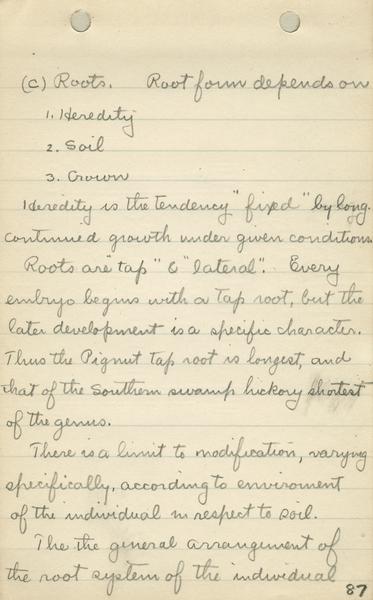 (c) Roots. Root form depends on
1. Heredity
2. Soil
3. Crown
Heredity is the tendency "fixed" by long-
continued growth under given conditions.
Roots are "tap" & "lateral". Every
embryo begins with a tap root, but the
later development is a specific character.
Thus the Pignut tap root is longest, and
that of the Southern swamp hickory shortest
of the genus.
There is a limit to modification, varying
specifically, according to enviroment
of the individual in respect to soil.
The the general arrangement of
the root system of the individual
87